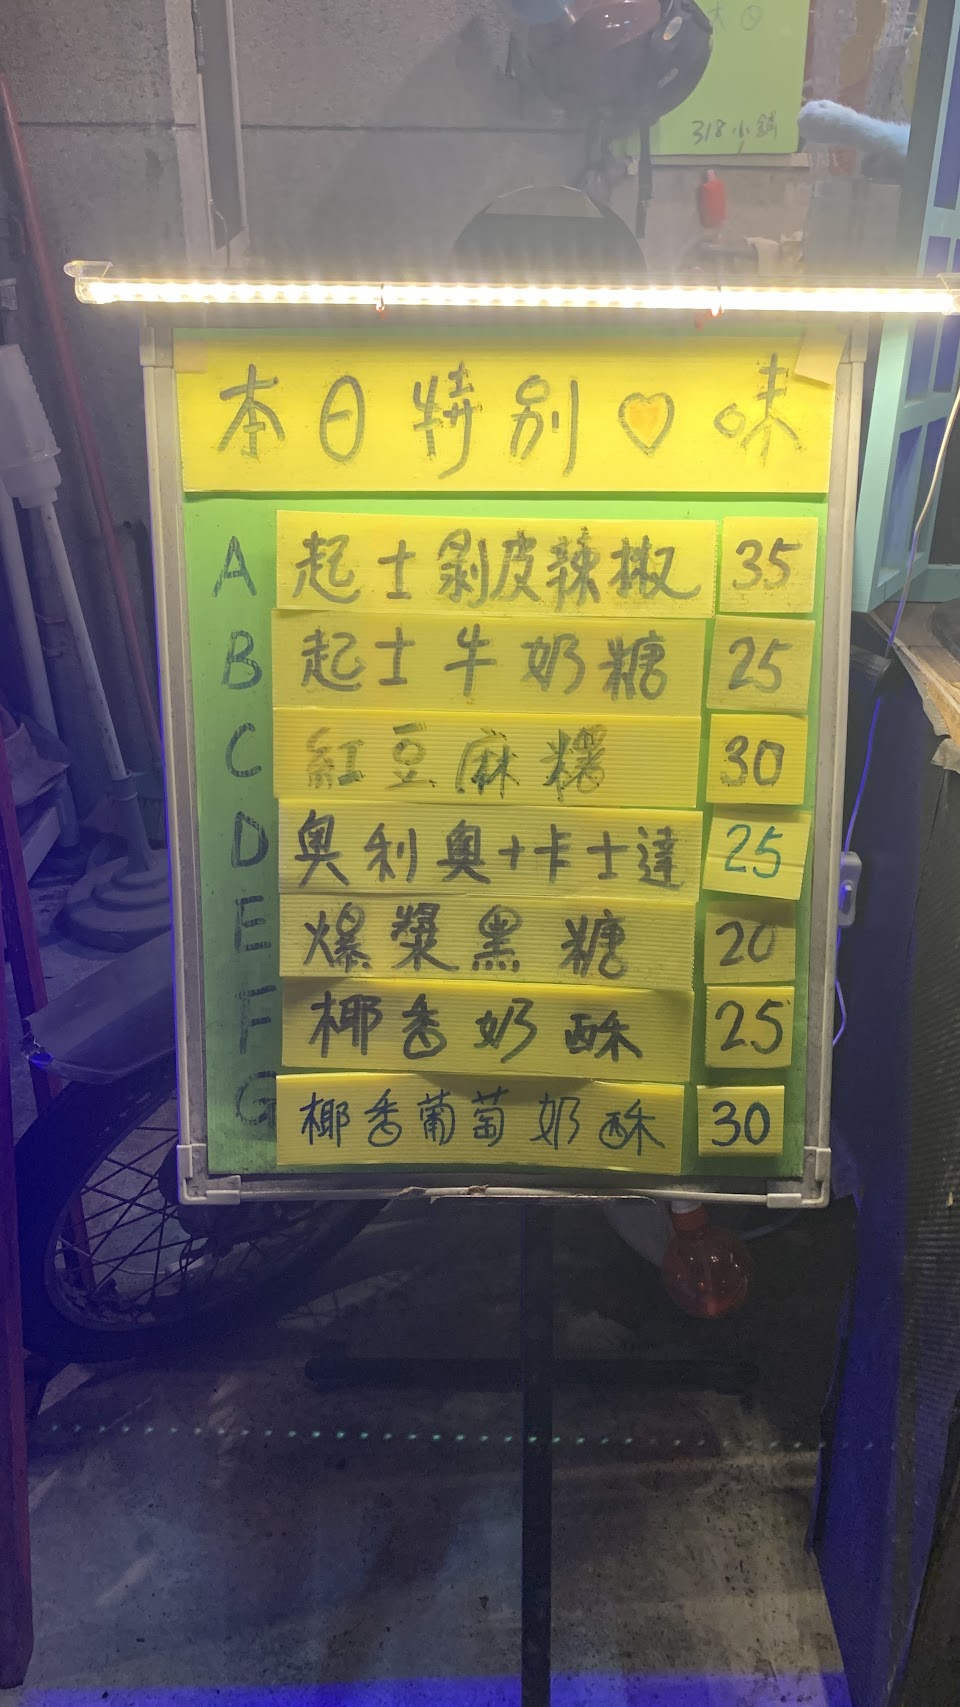 318小鋪
本日特別♡味
A 起士剝皮辣椒 35
B 起士牛奶糖 25
C 紅豆麻糬 30
D 奧利奧+卡士達 25
E 爆漿黑糖 20
F 椰香奶酥 25
G 椰香葡萄奶酥 30